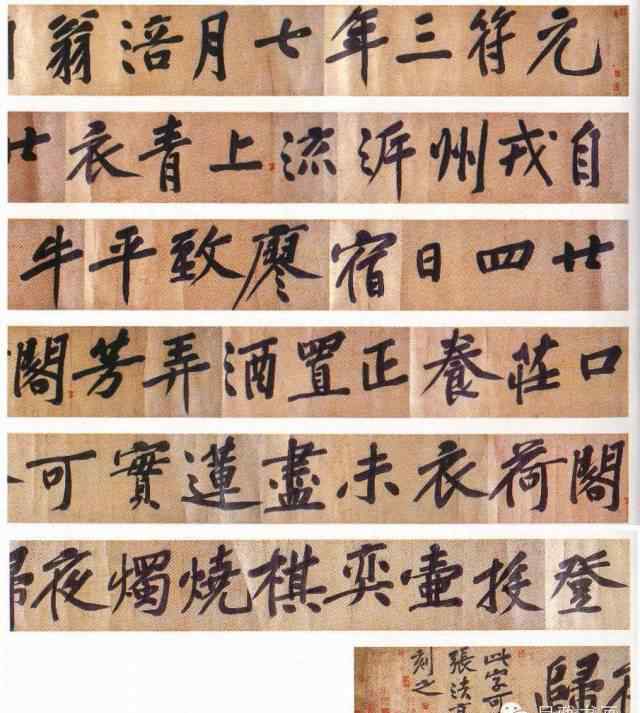 元符三年七月涪翁
自戎州泝流上青衣廿
廿四日宿廖致平牛
口莊養正置酒弄芳閣
閣荷衣未盡蓮實可
登投壺弈棋燒燭夜歸
歸
此字可
張法
刻之